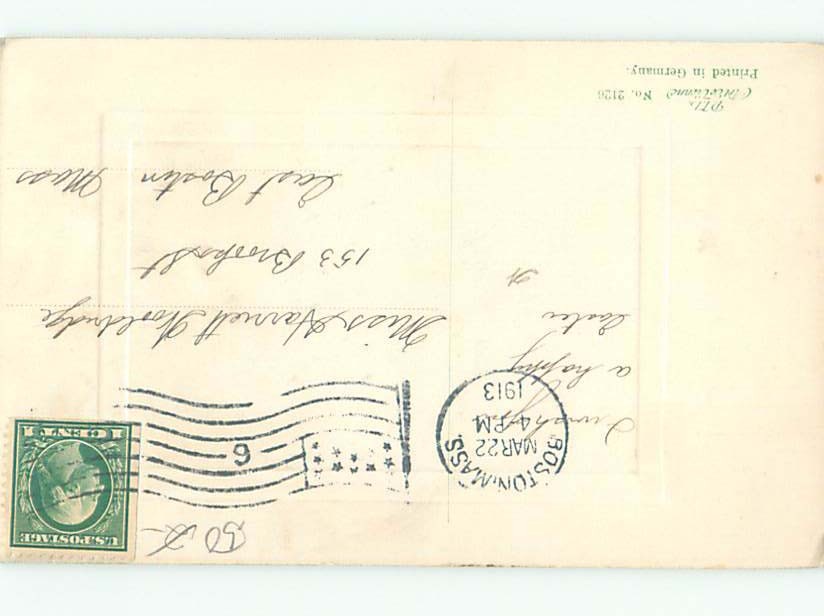 U.S. POSTAGE
1 CENT 1
BOSTON, MASS.
MAR 22
4-PM
1913
6
I wish you
a happy
Easter
H
Miss Harriett Wooldridge
153 Brooks St
East Boston Mass
No. 2126
Printed in Germany.